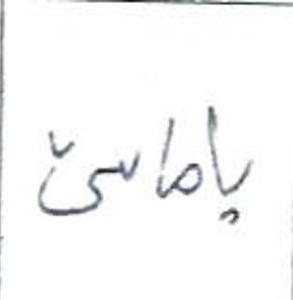 یاماسێ